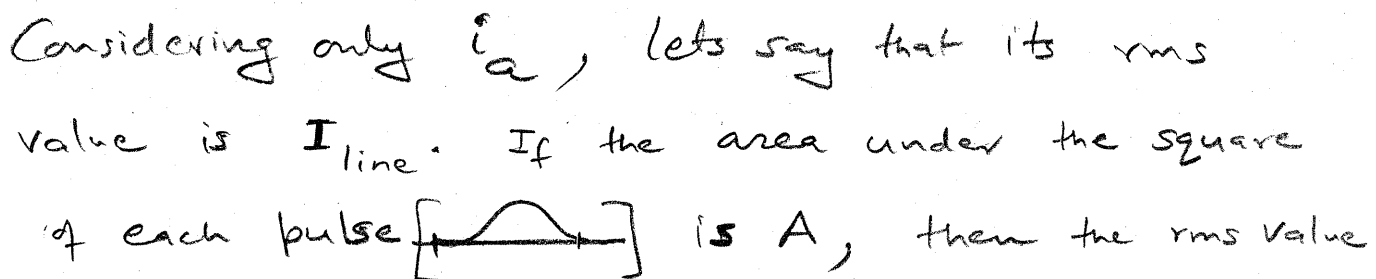 Considering only i_a, lets say that its rms
value is I_line. If the area under the square
of each pulse [ ] is A, then the rms value